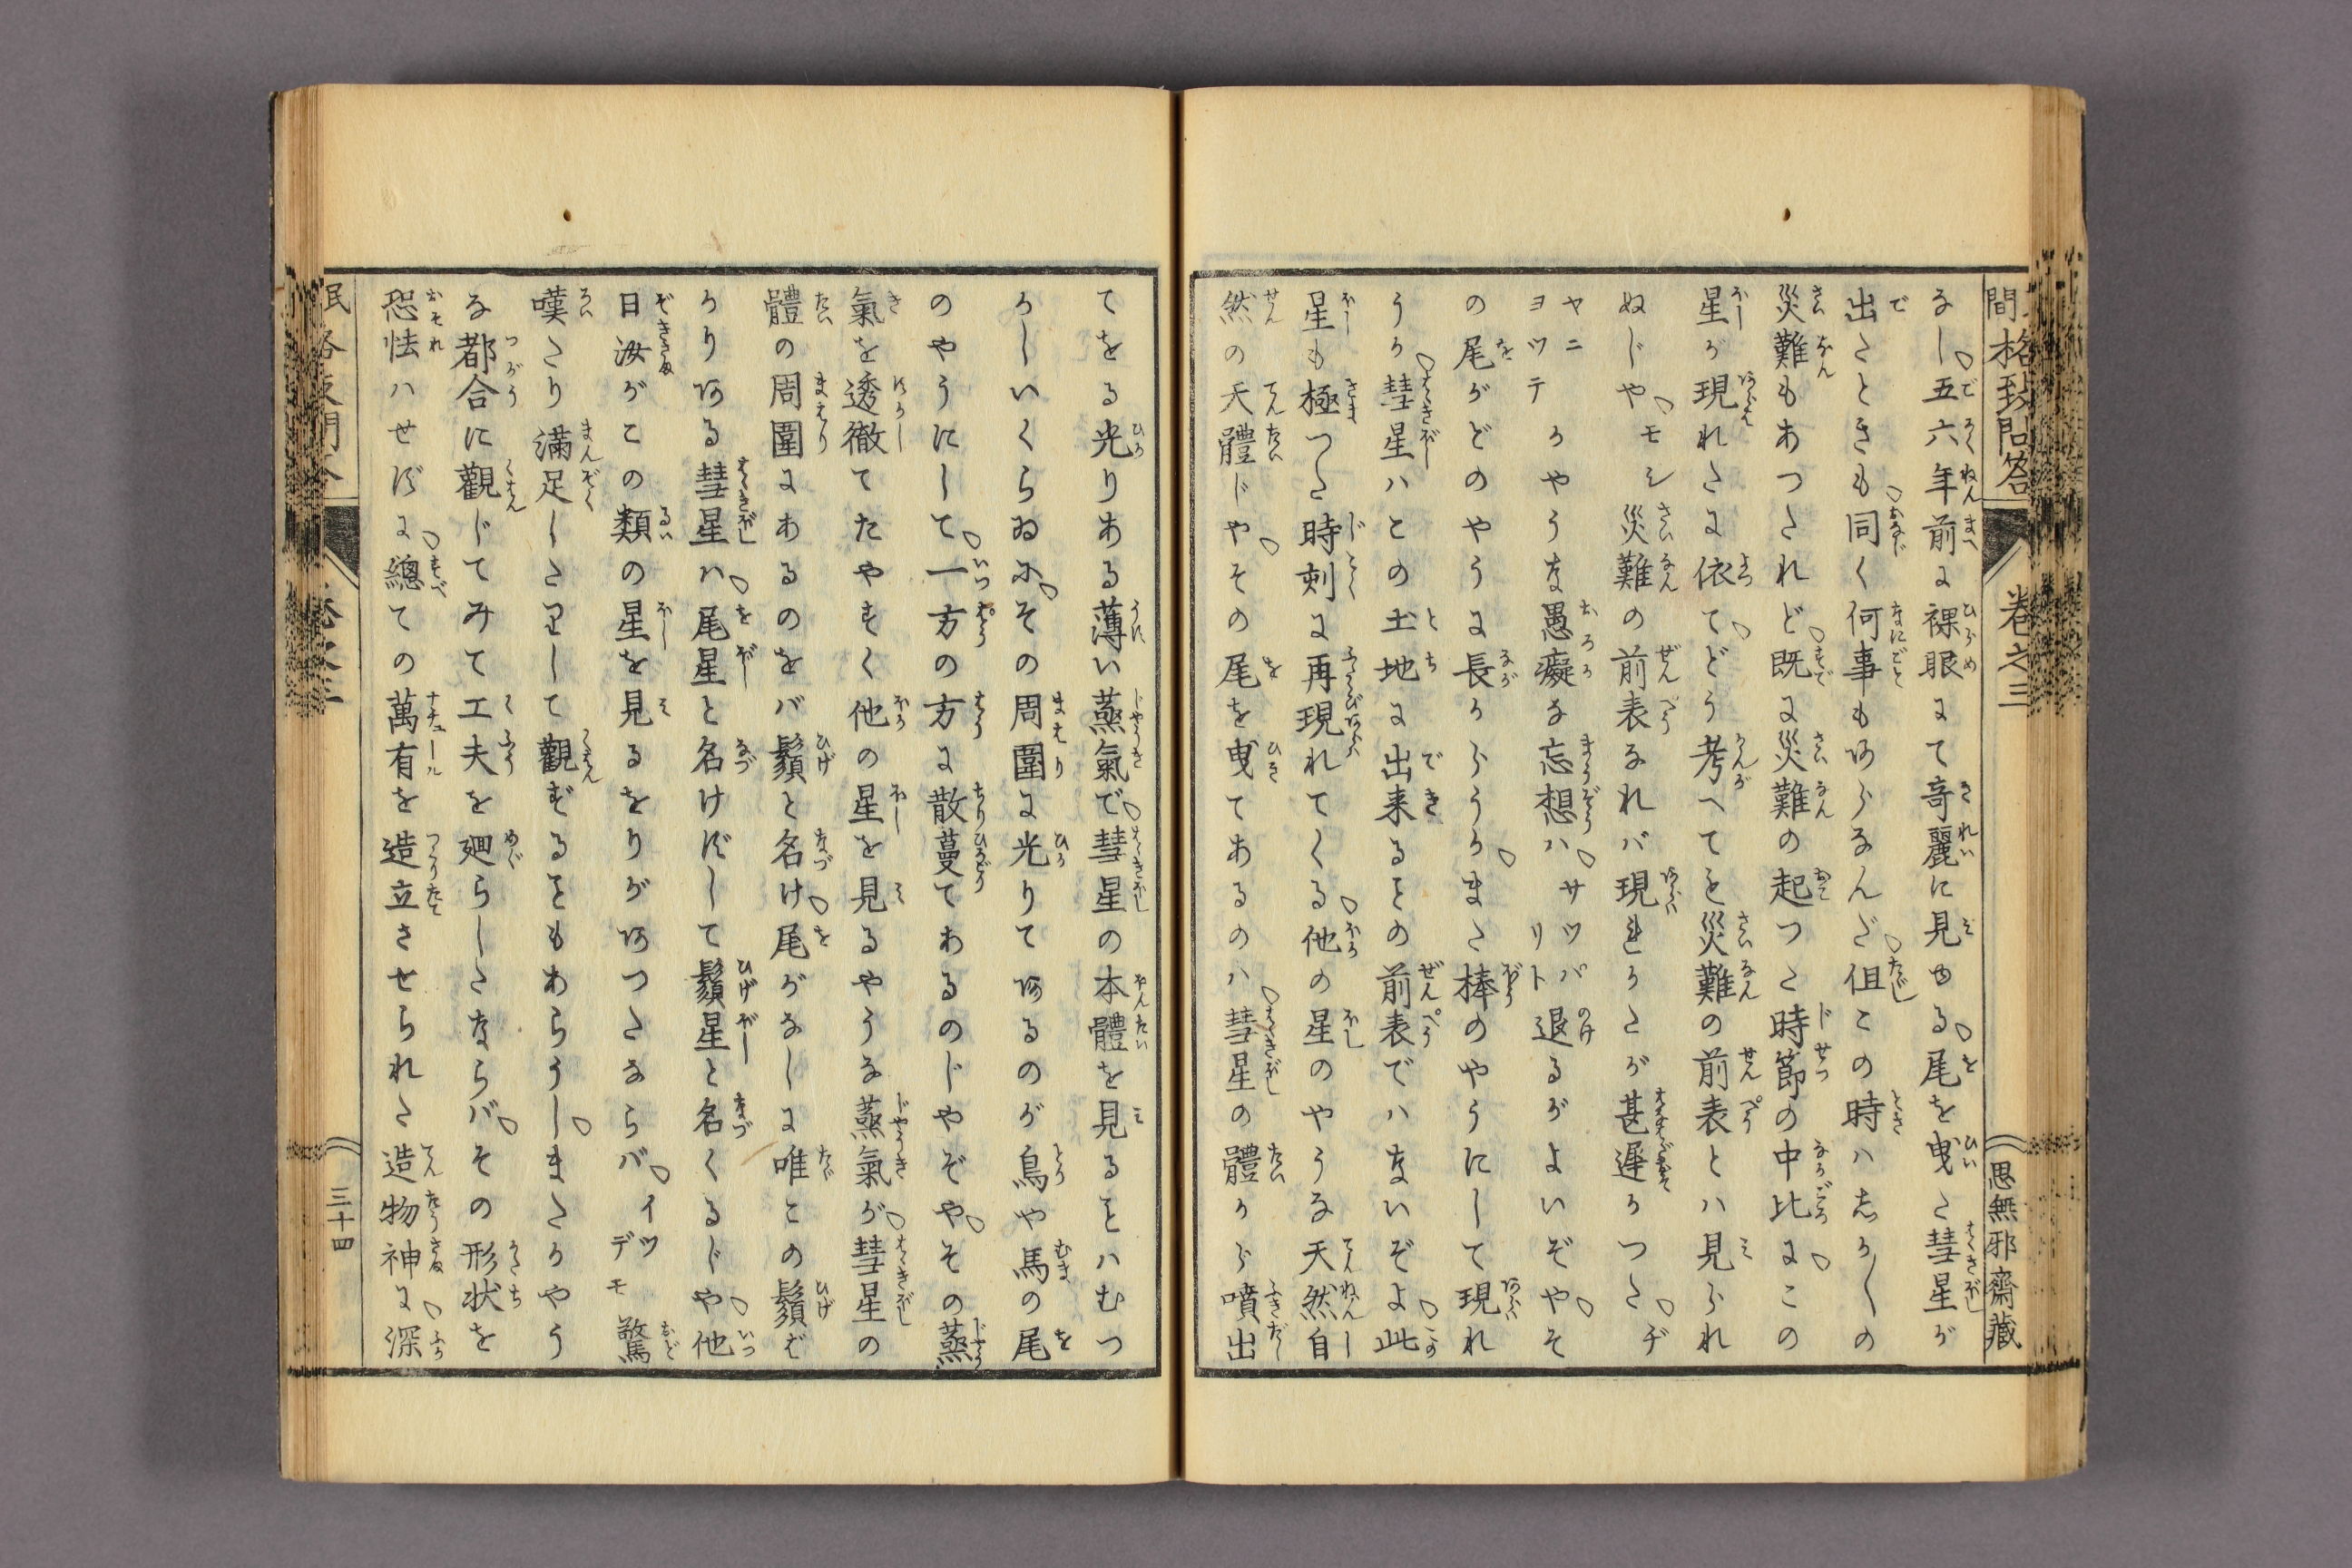 民間格致問答
卷之三
思無邪齋藏
なし、五六年前に裸眼にて奇麗に見ゆる、尾を曳いた彗星が
出たときも、同く何事もあらなんだ、但この時ハ志かしの
災難もあつたれど、既に災難の起つた時節の中比に、この
星が現れたに依て、どう考へても災難の前表とハ見られ
ぬじや、モシ災難の前表なれバ現れかたが甚遅かつた、ヂ
ヤニヨツテかやうな愚癡な忘想ハ、サツパリト退るがよいぞや、そ
の尾がどのやうに長からうか、また棒のやうにして現れ
うか、彗星ハとの土地に出来ることの前表でハないぞよ、此
星も極つた時刻に再現れてくる、他の星のやうな天然自
然の天體じや、その尾を曳てあるのハ、彗星の體から噴出
てをる光りある薄い蒸氣で、彗星の本體を見ることハむつ
かしいくらゐに、その周圍に光りてあるのが鳥や馬の尾
のやうにして、一方の方に散蔓てあるのじやぞや、その蒸
氣を透徹てたやすく他の星を見るやうな蒸氣が、彗星の
體の周圍にあるのをバ鬚と名け、尾がなしに唯この鬚ば
かりある彗星ハ、尾星と名けずして鬚星と名くるじや、他
日汝がこの類の星を見るをりがあつたならバ、イツデモ驚
嘆たり滿足したりして觀ずることもあらうし、またかやう
な都合に觀じてみて工夫を廻らしたならバ、その形状を
恐怯ハせずに、總ての萬有を造立させられた造物神に、深
三十四